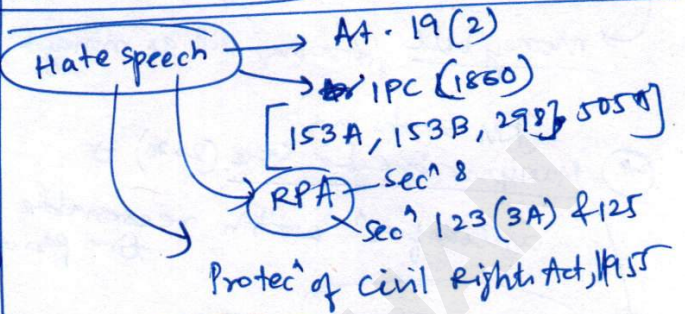 Hate speech → Art. 19(2)
→ IPC (1860)
[153A, 153B, 298, 505]
RPA - secⁿ 8
secⁿ 123(3A) & 125
Protecⁿ of Civil Rights Act, 1955